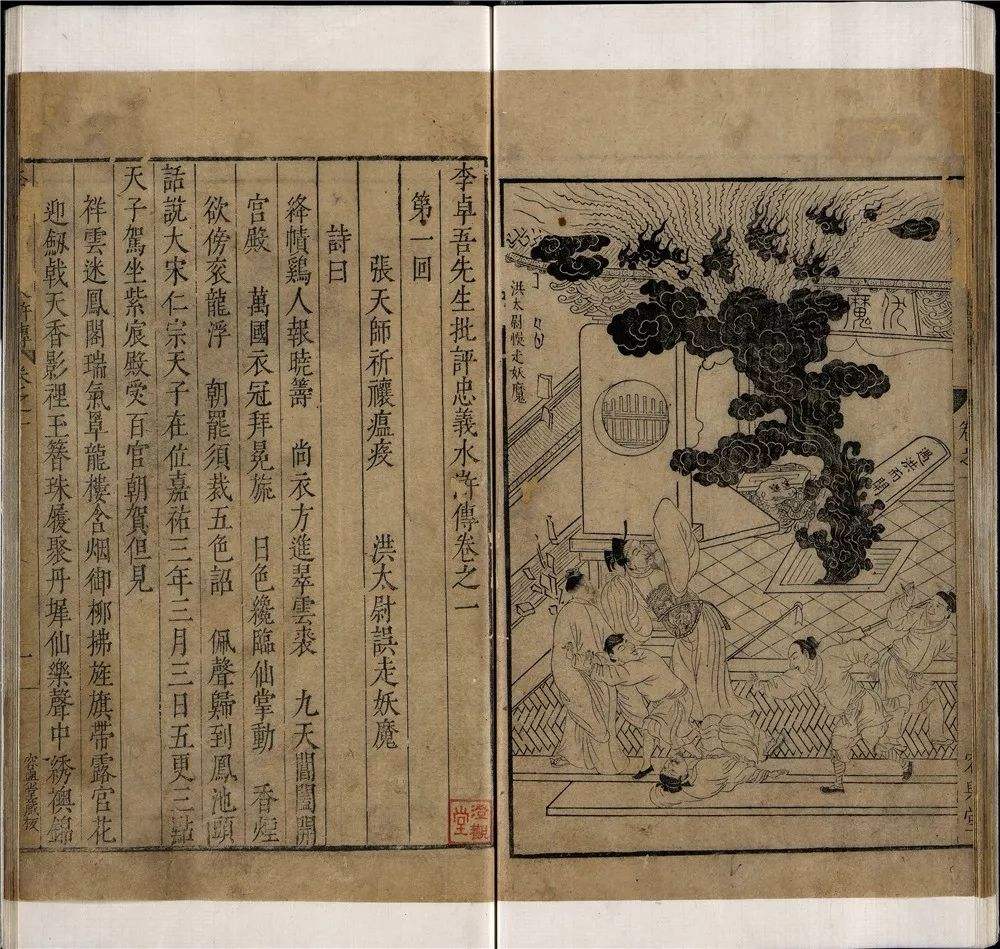 卷之一
容與堂
伏魔
遇洪而開
洪太尉悞走妖魔
李卓吾先生批評忠義水滸傳卷之一
澄觀堂
第一回
張天師祈禳瘟疫　洪太尉誤走妖魔
詩曰
絳幘鷄人報曉籌　尚衣方進翠雲裘　九天閶闔開
宮殿　萬國衣冠拜冕旒　日色纔臨仙掌動　香煙
欲傍衮龍浮　朝罷須裁五色詔　佩聲歸到鳳池頭
話說大宋仁宗天子在位嘉祐三年三月三日五更三點
天子駕坐紫宸殿受百官朝賀但見
祥雲迷鳳閣瑞氣罩龍樓含烟御柳拂旌旗帶露宮花
迎劎戟天香影裡玉簪珠履聚丹墀仙樂聲中綉襖錦
水滸傳　卷之一　一
容與堂藏板